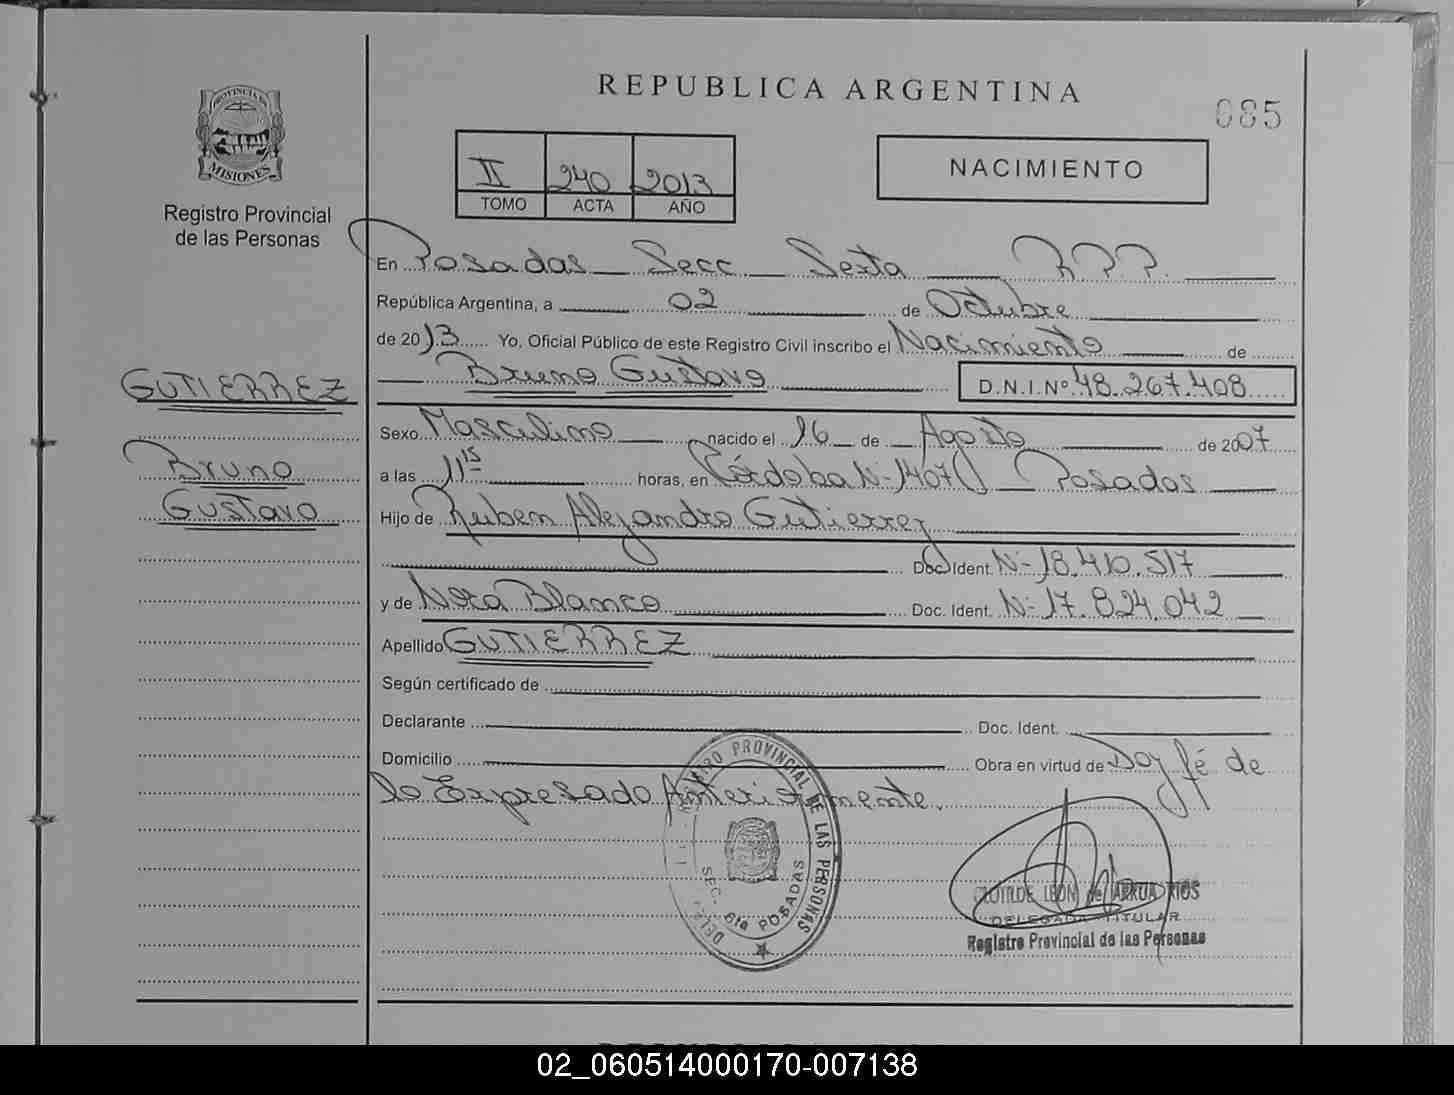 REPUBLICA ARGENTINA
085
PROVINCIA DE
MISIONES
Registro Provincial
de las Personas
II 240 2013
TOMO ACTA AÑO
NACIMIENTO
En Posadas Secc Sexta R.P.P.
República Argentina, a 02 de Octubre
de 2013 Yo, Oficial Público de este Registro Civil inscribo el Nacimiento de
Bruno Gustavo D.N.I.Nº 48.267.408
GUTIERREZ
Bruno
Gustavo
Sexo Masculino nacido el 16 de Agosto de 2007
a las 11 15 horas, en Córdoba N- 1407 Posadas
Hijo de Ruben Alejandro Gutierrez
Doc. Ident. N- 18.410.517
y de Nora Blanco Doc. Ident. N- 17.824.042
Apellido GUTIERREZ
Según certificado de
Declarante Doc. Ident.
Domicilio Obra en virtud de Doy fé de
lo Expresado Anteriormente.
REGISTRO PROVINCIAL DE LAS PERSONAS
SEC. 6ta POSADAS
CLOTILDE LEON de ARRUA RIOS
DELEGADA TITULAR
Registro Provincial de las Personas
02_060514000170-007138